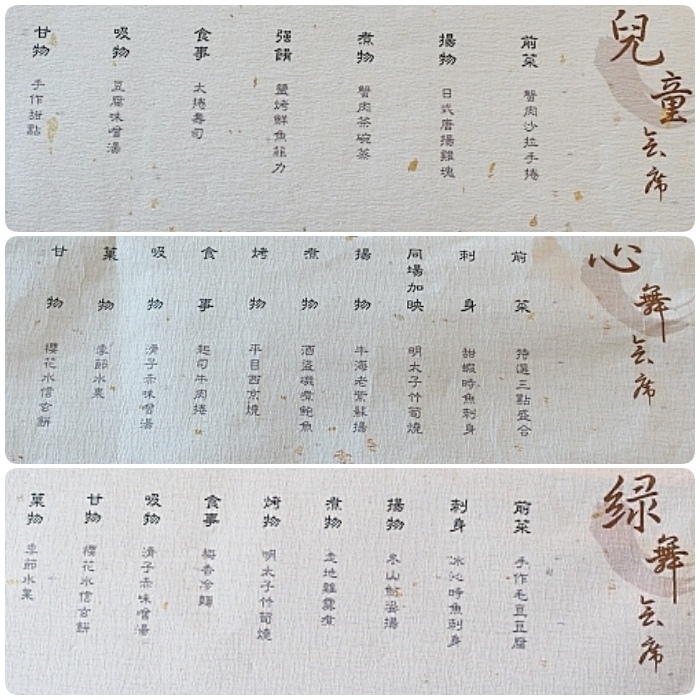 兒童会席
前菜
蟹肉沙拉手捲
揚物
日式唐揚雞塊
煮物
蟹肉茶碗蒸
強餚
鹽烤鮮魚菲力
食事
太捲壽司
吸物
豆腐味噌湯
甘物
手作甜點
心舞会席
前菜
特選三點盛合
刺身
甜蝦時魚刺身
同場加映
明太子竹筍燒
揚物
牛海老紫蘇揚
煮物
酒盜磯煮鮑魚
烤物
平目西京燒
食事
起司牛肉捲
吸物
滑子赤味噌湯
菓物
季節水果
甘物
櫻花水信玄餅
緑舞会席
前菜
手作毛豆豆腐
刺身
冰沁時魚刺身
揚物
冬山
揚
煮物
走地雞
煮
烤物
明太子竹筍燒
食事
梅香冷麵
吸物
滑子赤味噌湯
甘物
櫻花水信玄餅
菓物
季節水果